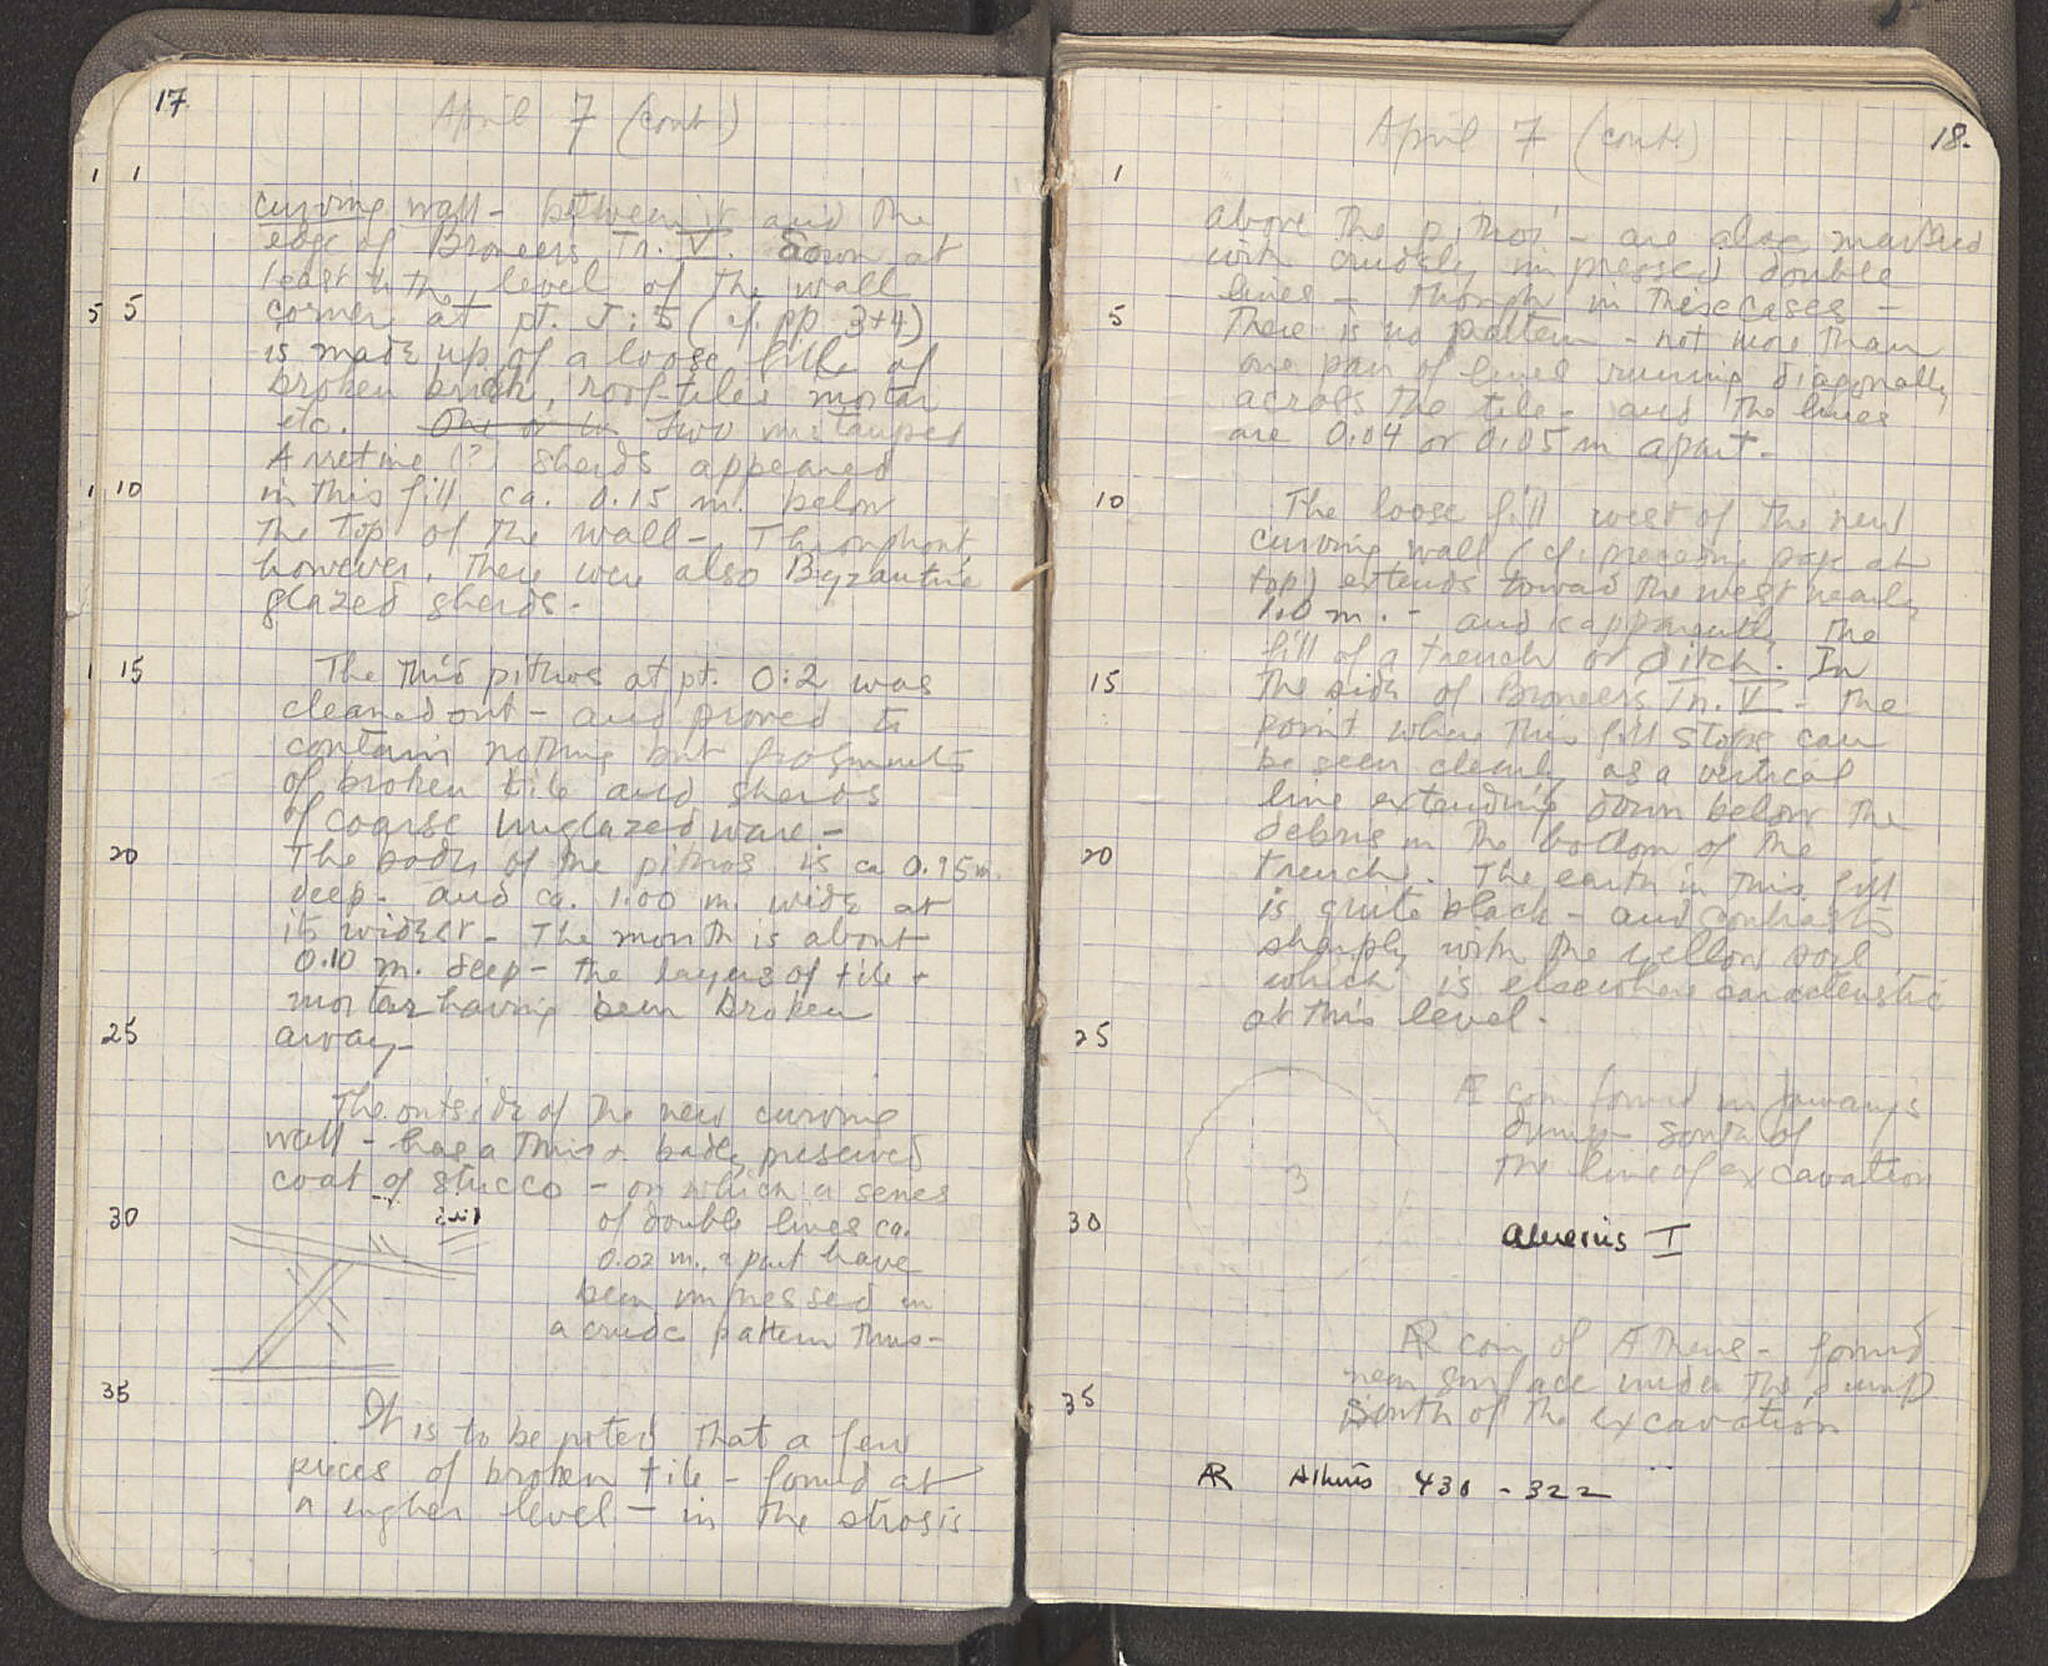 17
April 7 (cont)
1 1
curving wall - between it and the
edge of Broneers Tr. V. down at
least to the level of the wall
5 5
corner at pt. J:5 (cf. pp 3+4)
is made up of a loose fill of
broken brick, roof-tiles mortar
etc. One or Two
Arretine (?) sherds appeared
1 10
in this fill ca. 0.15 m. below
the top of the wall - Throughout,
however, there were also Byzantine
glazed sherds -
1 15
The third pithos at pt. O:2 was
cleaned out - and proved to
contain nothing but fragments
of broken tile and sherds
of coarse unglazed ware -
20
The body of the pithos is ca 0.95 m.
deep - and ca. 1.00 m. wide at
its widest - The mouth is about
0.10 m. deep - the layers of tile +
mortar having been broken
25
away -
The outside of the new curving
wall - has a thin + badly preserved
coat of stucco - on which a series
30
of double lines ca.
0.02 m. apart have
been impressed in
a crude pattern thus -
35
It is to be noted that a few
pieces of broken tile - found at
a higher level - in the strosis
18.
April 7 (cont.)
1
above the pithoi - are also marked
with crudely impressed double
lines - though in these cases -
5
There is no pattern - not more than
one pair of lines running diagonally
across the tile - and the lines
are 0.04 or 0.05 m apart -
10
The loose fill west of the new
curving wall (cf. preceding page at
top) extends toward the west nearly
1.0 m. - and is apparently the
fill of a trench or ditch. In
15
the side of Broneers Tr. V - the
point where this fill stops can
be seen clearly as a vertical
line extending down below the
debris in the bottom of the
20
trench. The earth in this fill
is quite black - and contrasts
sharply with the yellow soil
which is elsewhere caracteristic
at this level.
25
Æ coin found in
dump south of
the line of excavation
3
30
I
AR coin of Athens - found
near surface under the dump
35
South of the excavation
AR Athens 430 - 322